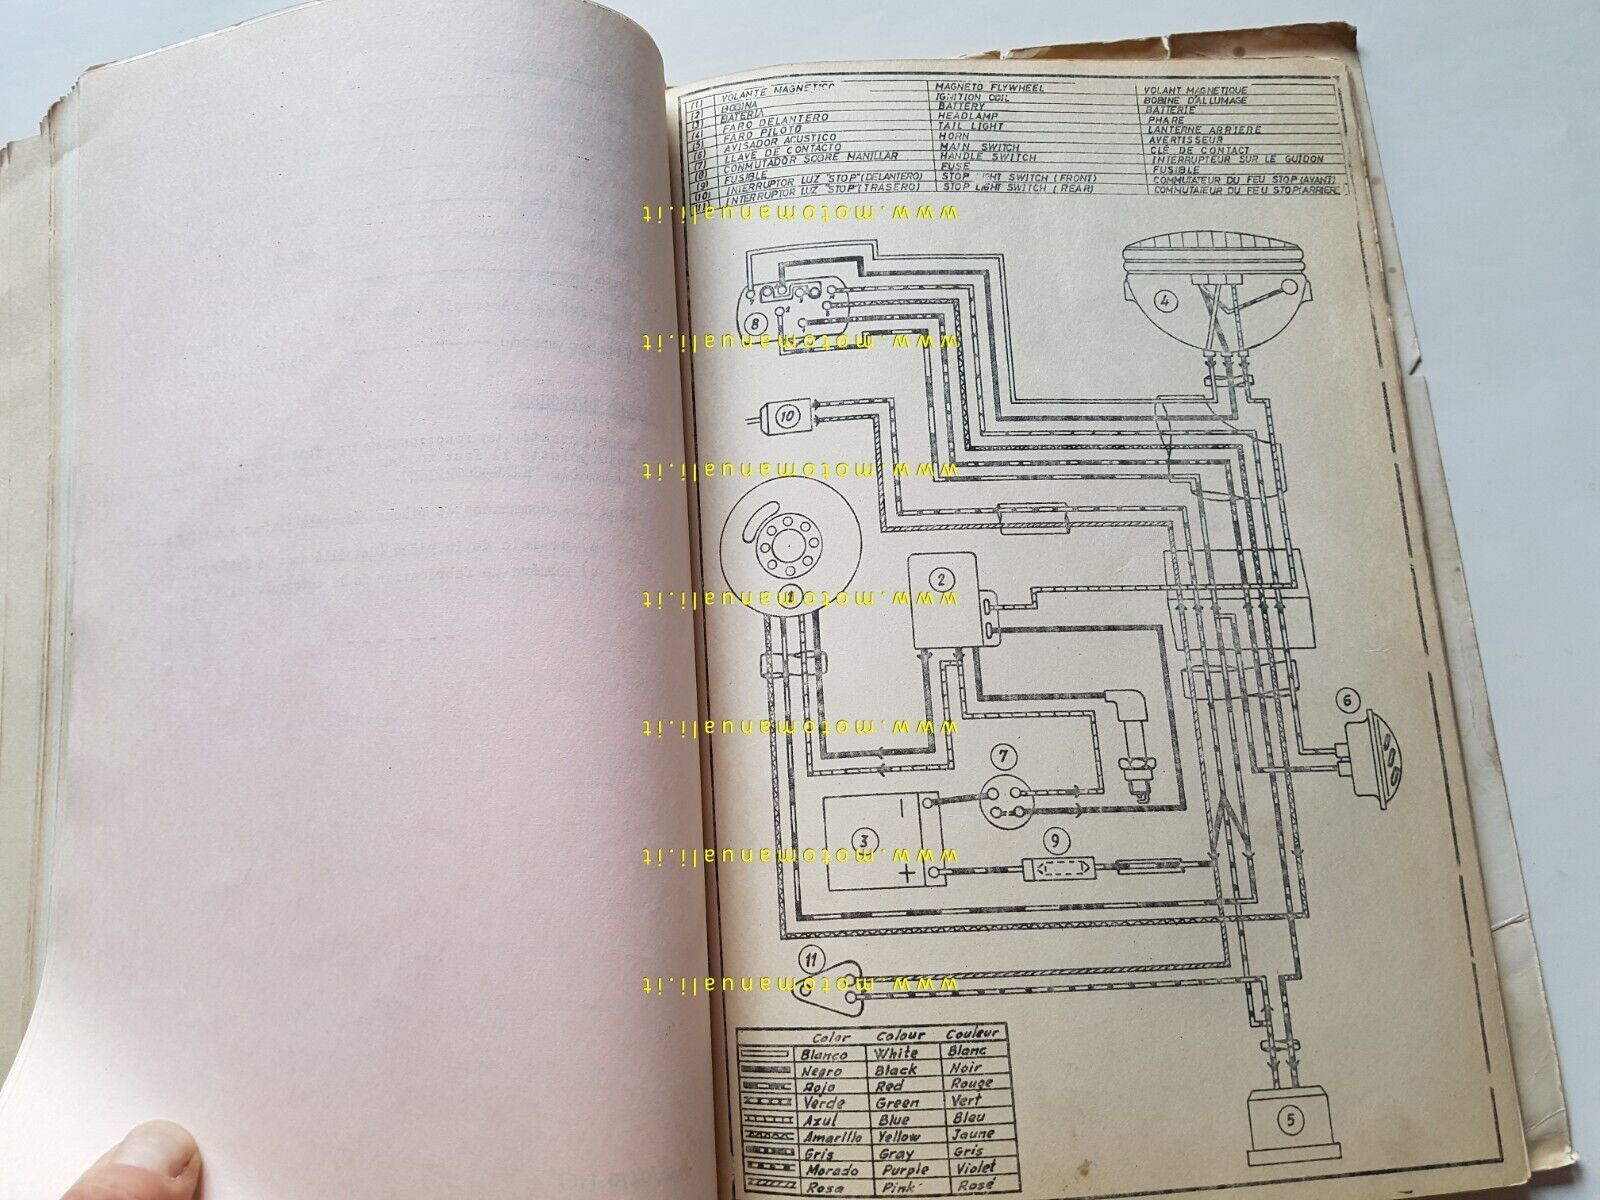 (1) VOLANTE MAGNETICO MAGNETO FLYWHEEL VOLANT MAGNETIQUE
(2) BOBINA IGNITION COIL BOBINE D'ALLUMAGE
(3) BATERIA BATTERY BATTERIE
(4) FARO DELANTERO HEADLAMP PHARE
(5) FARO PILOTO TAIL LIGHT LANTERNE ARRIERE
(6) AVISADOR ACUSTICO HORN AVERTISSEUR
(7) LLAVE DE CONTACTO MAIN SWITCH CLÉ DE CONTACT
(8) CONMUTADOR SOBRE MANILLAR HANDLE SWITCH INTERRUPTEUR SUR LE GUIDON
(9) FUSIBLE FUSE FUSIBLE
(10) INTERRUPTOR LUZ "STOP" (DELANTERO) STOP LIGHT SWITCH (FRONT) COMMUTATEUR DU FEU STOP (AVANT)
(11) INTERRUPTOR LUZ "STOP" (TRASERO) STOP LIGHT SWITCH (REAR) COMMUTATEUR DU FEU STOP (ARRIERE
www.motomanuali.it
4
8
www.motomanuali.it
10
www.motomanuali.it
2
1
www.motomanuali.it
6
www.motomanuali.it
7
3
+
9
www.motomanuali.it
11
www.motomanuali.it
5
Color Colour Couleur
Blanco White Blanc
Negro Black Noir
Rojo Red Rouge
Verde Green Vert
Azul Blue Bleu
Amarillo Yellow Jaune
Gris Gray Gris
Morado Purple Violet
Rosa Pink Rosé